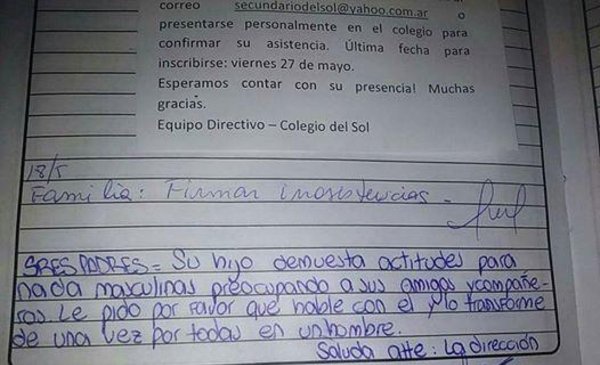 correo secundariodelsol@yahoo.com.ar o
presentarse personalmente en el colegio para
confirmar su asistencia. Última fecha para
inscribirse: viernes 27 de mayo.
Esperamos contar con su presencia! Muchas
gracias.
Equipo Directivo – Colegio del Sol
18/5
Familia: Firmar inasistencias -
SRES PADRES = Su hijo demuesta actitudes para
nada masculinas preocupando a sus amigos y compañe-
ros Le pido por favor que hable con el y lo transforme
de una vez por todas en un hombre.
Saluda atte: La dirección